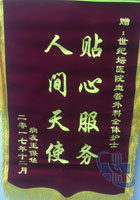 赠：世纪坛医院血管外科全体护士
贴心服务
人间天使
病友王保征
二零一七年十二月